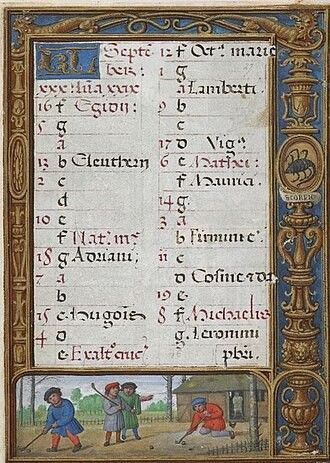 KL Septē
ber:
xxx: lūa xxix
16 f Egidii:
5 g
a
13 b Eleuthern
2 c
d
10 e
f Nat: mr̄
18 g Adriani:
7 a
b
15 c Hugois
4 d
e Exalt: cruc̄
12 f Oct: marie
1 g
a Lamberti
9 b
c
17 d Vigᵃ
6 e Mathei:
f Maurici
14 g
3 a
b Firmini e:
11 c
d Cosme & da
19 e
8 f Michaelis
g Ieronimi
pbri:
SCORPIO